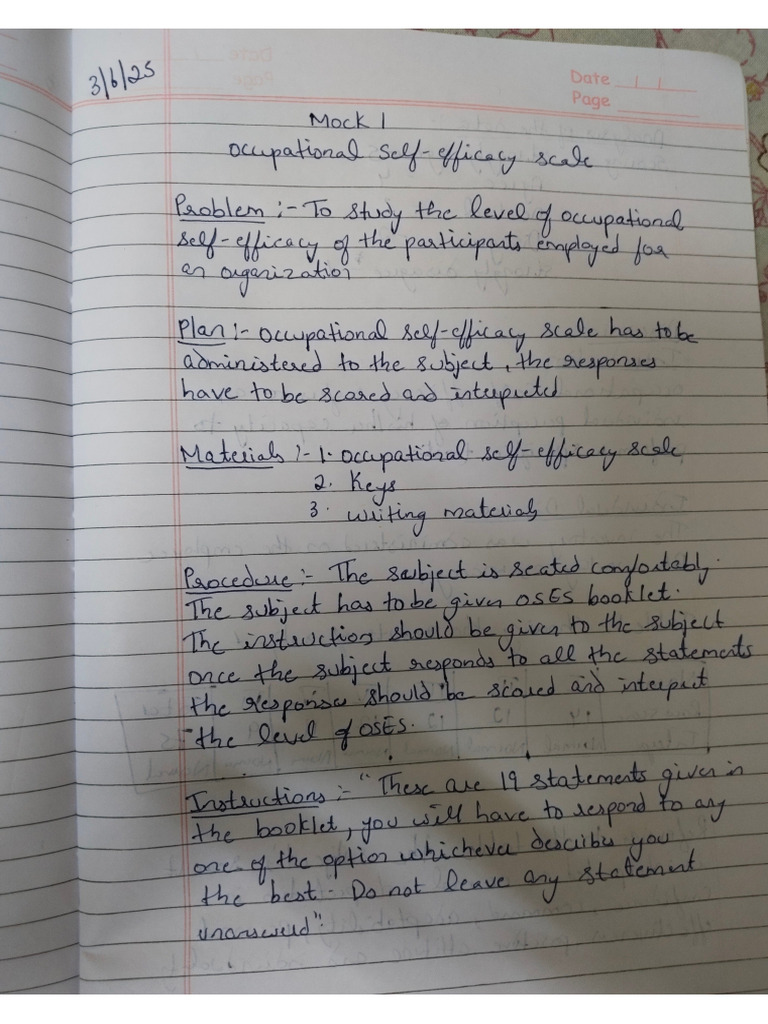 3/6/25
Date / /
Page
Mock 1
Occupational Self-efficacy scale
Problem :- To study the level of occupational
self-efficacy of the participants employed for
an organization
Plan :- Occupational self-efficacy scale has to be
administered to the subject, the responses
have to be scored and interpreted
Materials :- 1. Occupational self-efficacy scale
2. Keys
3. writing materials
Procedure :- The subject is seated comfortably.
The subject has to be given OSES booklet.
The instruction should be given to the subject
once the subject responds to all the statements
the responses should be scored and interpret
the level of OSES.
Instructions :- "These are 19 statements given in
the booklet, you will have to respond to any
one of the option whichever describes you
the best. Do not leave any statement
unanswered".